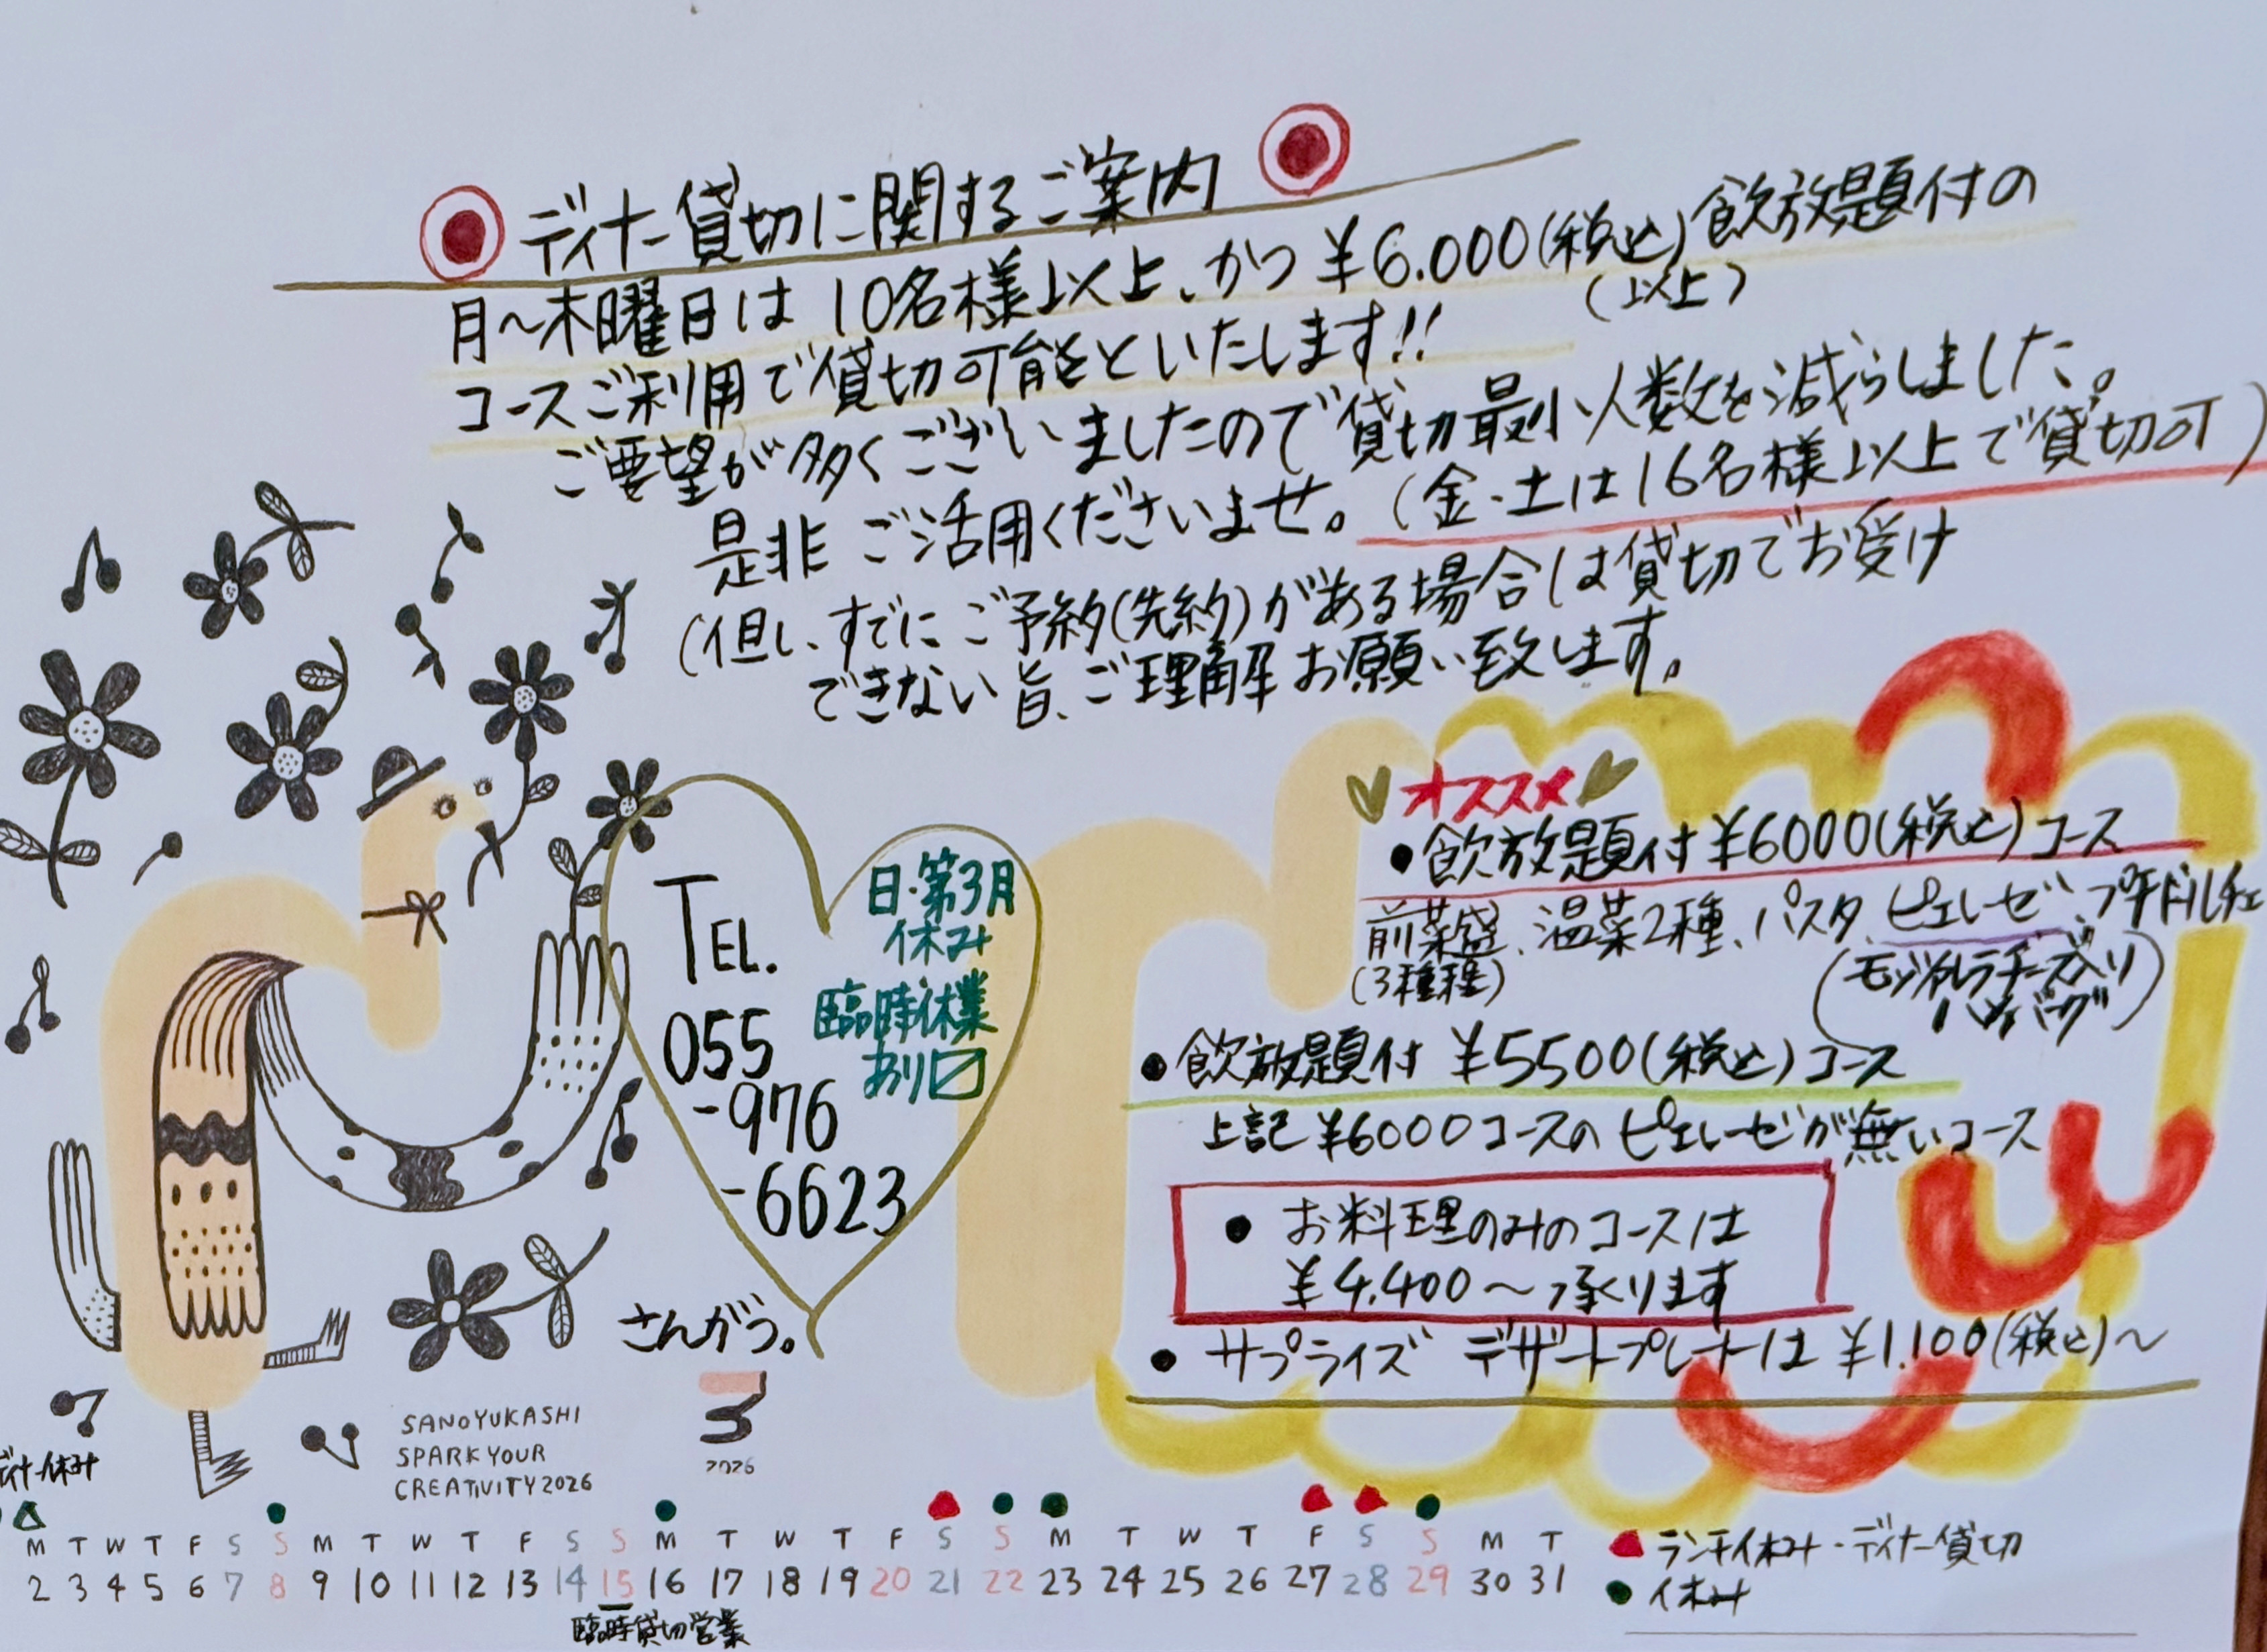 ディナー貸切に関するご案内
月〜木曜日は10名様以上、かつ¥6.000(税込)飲放題付の
(以上)
コースご利用で貸切可能といたします!!
ご要望が多くございましたので貸切最小人数を減らしました。
是非ご活用くださいませ。(金・土は16名様以上で貸切可)
(但し、すでにご予約(先約)がある場合は貸切でお受け
できない旨、ご理解お願い致します。
オススメ
•飲放題付¥6000(税込)コース
前菜盛、温菜2種、パスタ、ピエレーゼ、プチドルチェ
(3種種)
(モッツァレラチーズ入り
ハンバーグ)
•飲放題付 ¥5500(税込)コース
上記¥6000コースのピエレーゼが無いコース
• お料理のみのコースは
¥4.400〜承ります
• サプライズ デザートプレートは¥1.100(税込)〜
TEL.
055
-976
-6623
日・第3月
休み
臨時休業
あり〼
さんがつ。
3
2026
SANOYUKASHI
SPARK YOUR
CREATIVITY 2026
ディナー休み
M T W T F S S M T W T F S S M T W T F S S M T W T F S S M T
2 3 4 5 6 7 8 9 10 11 12 13 14 15 16 17 18 19 20 21 22 23 24 25 26 27 28 29 30 31
臨時貸切営業
ランチ休み・ディナー貸切
休み